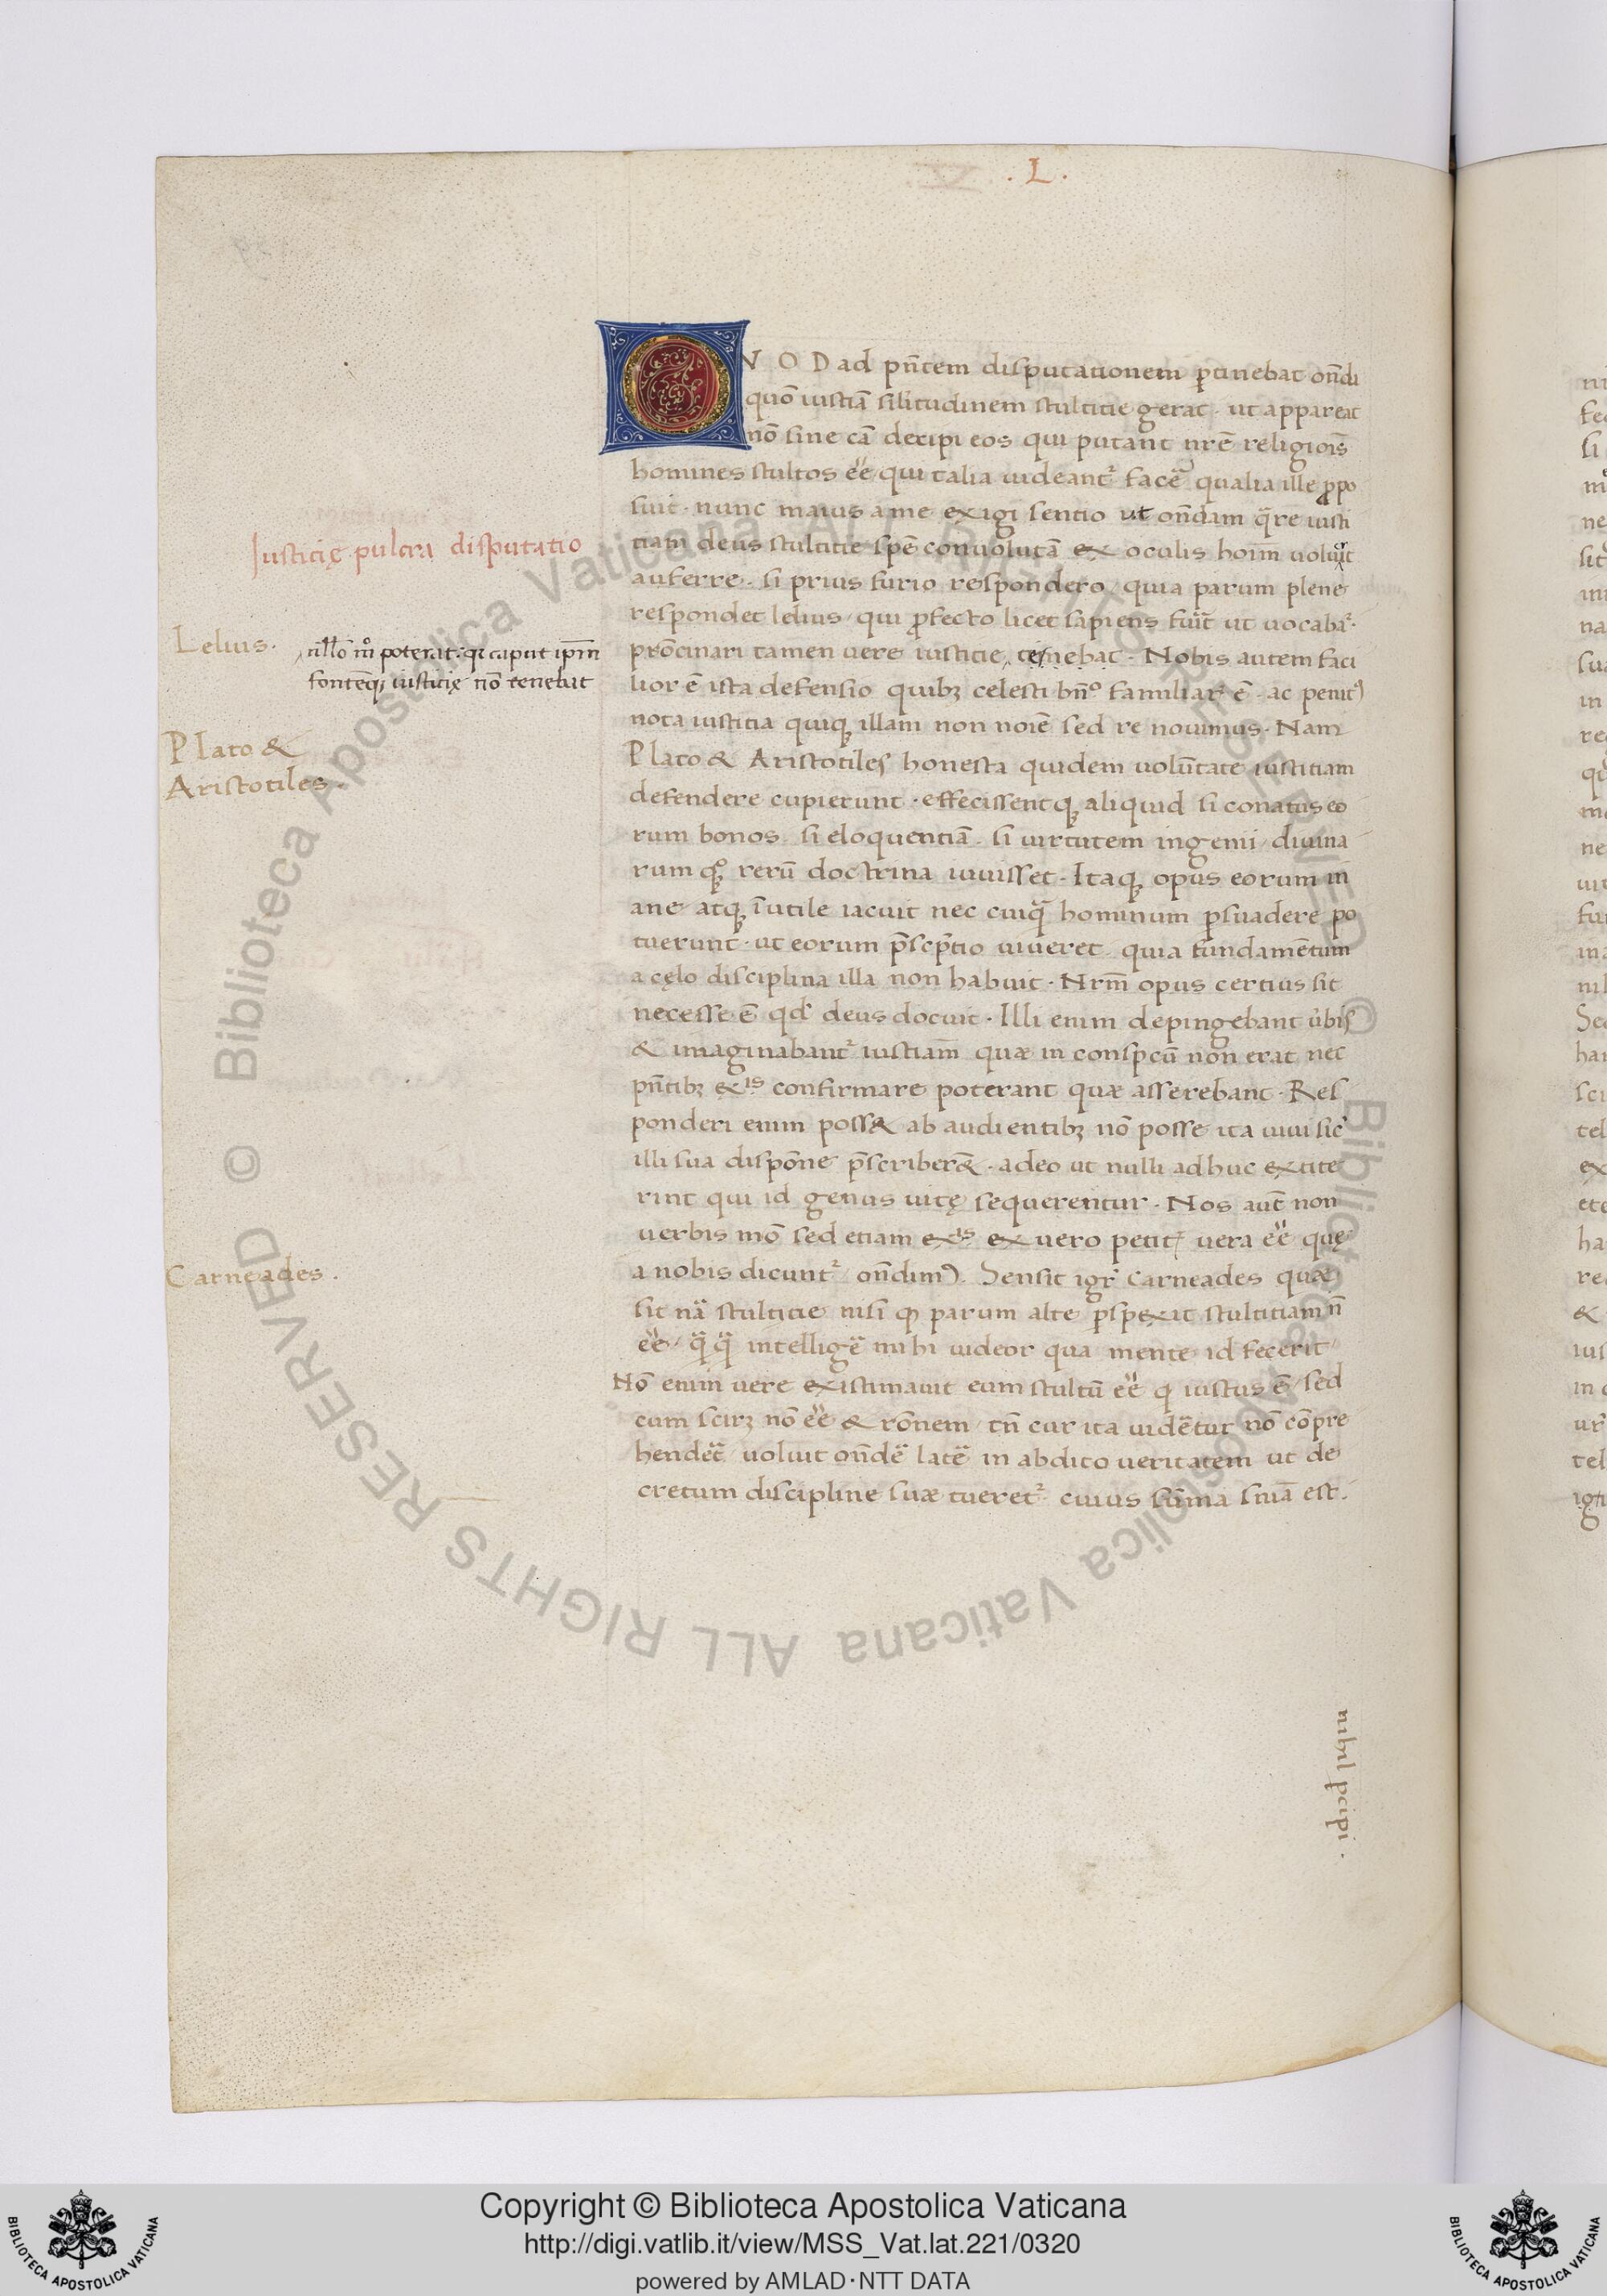 . L .
QVOD ad pn̄tem disputationem ꝑtinebat on̄di
quō iustiā silitudinem stultitie gerat · ut appareat
nō sine cā decipi eos qui putant nr̄e religiois̄
homines stultos ēē qui talia uideant᷑ facē qualia ille ꝓpo
suit · nunc maius a me exigi sentio ut on̄dam q̄re iusti
tiam deus stultitie spē conuolutā ex oculis hoim̄ uoluit
auferre · si prius furio respondero quia parum plene
respondet lelius / qui ꝓfecto licet sapiens fuit ut uocaba᷑ ·
prōcinari tamen uere iusticie tenebat · Nobis autem faci
lior ē ista defensio quibꝫ celesti bn̄º familiar᷑ ē · ac penitꝰ
nota iustitia quiqꝫ illam non noiē sed re nouimus · Nam
Plato & Aristotiles honesta quidem volūtate iustitiam
defendere cupierunt · effecissentqꝫ aliquid si conatus eo
rum bonos si eloquentiā si uirtutem ingenii / diuina
rum qꝫ rerū doctrina iuuisset · Itaqꝫ opus eorum in
ane atqꝫ īutile iacuit nec cuiq̄ hominum ꝑsuadere po
tuerunt · ut eorum p̄scp̄tio uiueret quia fundamētum
a cęlo disciplina illa non habuit · Nrm̄ opus certius sit
necesse ē qd̄ deus docuit · Illi enim depingebant u̓bis
& imaginabant᷑ iustiam̄ quæ in conspcū non erat nec
pn̄tibꝫ exⁱˢ confirmare poterant quæ asserebant · Res
ponderi enim poss& ab audientibꝫ nō posse ita uiui sic᷑
illi sua dispōne p̄scriber& · adeo ut nulli adhuc extite
rint qui id genus uitę sequerentur · Nos aut̄ non
verbis mō sed etiam exⁱˢ ex uero petit᷑ vera ēē quę
a nobis dicunt᷑ / on̄dimꝰ. Sensit igr᷑ Carneades quæ
sit nā stultitie nisi ꝙ parum alte ꝑspexit stultitiam n̄
ēē / q̄ q̄ intelligē mihi uideor qua mente id fecerit
Nō enim vere existimauit eum stultū ēē ꝗ iustus ē / sed
cum scirꝫ nō ēē & rōnem / tn̄ cur ita uidētur nō cōpre
hendēt uoluit on̄dē latē in abdito ueritatem ut de
cretum discipline suæ tueret᷑ cuius sūma sn̄ia est.
Iusticię pulcra disputatio
Lelius.
nllō mº poterat : qi caput ipm̄
fontēqꝫ iusticię nō tenebat
Plato &
Aristotiles.
Carneades .
nihil ꝑcipi .
Copyright © Biblioteca Apostolica Vaticana
http://digi.vatlib.it/view/MSS_Vat.lat.221/0320
powered by AMLAD·NTT DATA
BIBLIOTECA APOSTOLICA VATICANA
BIBLIOTECA APOSTOLICA VATICANA
© Biblioteca Apostolica Vaticana ALL RIGHTS RESERVED
© Biblioteca Apostolica Vaticana ALL RIGHTS RESERVED